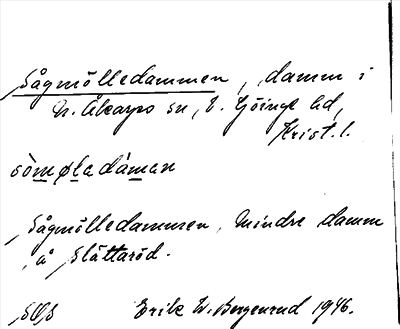 Sågmölledammen, damm i
N. Åkarps sn, V. Göinge hd,
Krist. l.
sòmøladáman
Sågmölledammen, mindre damm
å Slättaröd.
Erik W. Bergenrud 1946.